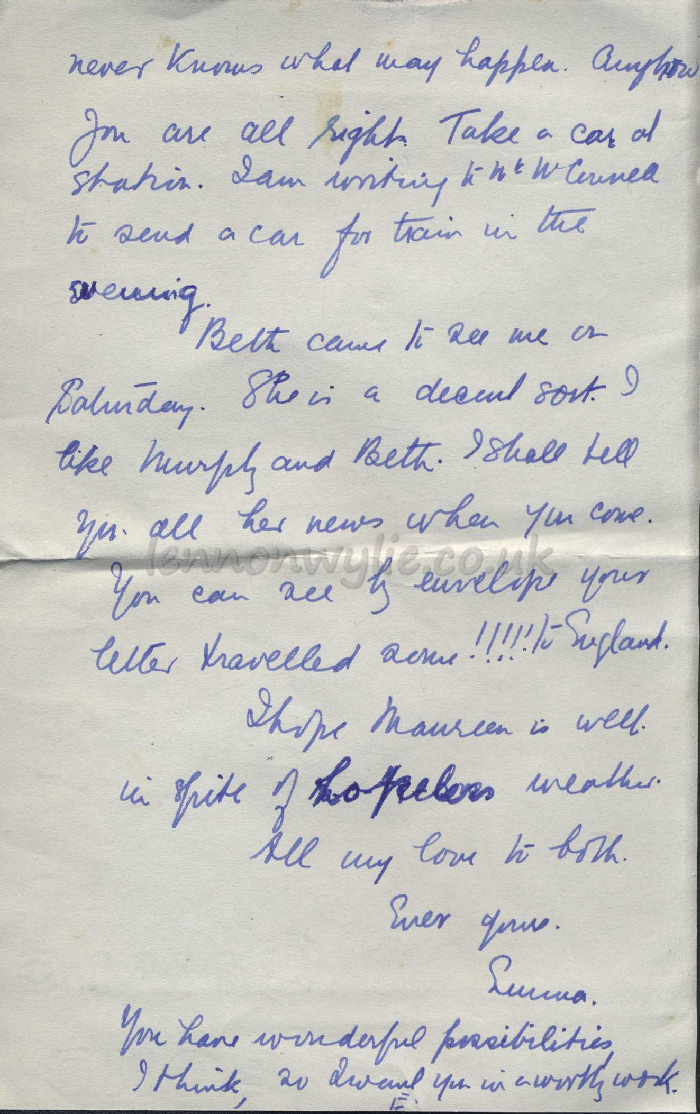 never knows what may happen. Anyhow
You are all right. Take a car at
station. I am writing to Mr McConnell
to send a car for train in the
evening.
Beth came to see me on
Saturday. She is a decent sort. I
like Murphy and Beth. I shall tell
you all her news when you come.
lennonwylie.co.uk
You can see by envelope your
letter travelled some!!!!! to England.
I hope Maureen is well
in spite of hopeless weather.
All my love to both.
Ever yours.
Emma.
You have wonderful possibilities
I think, so I want you in a worthy work.
E.